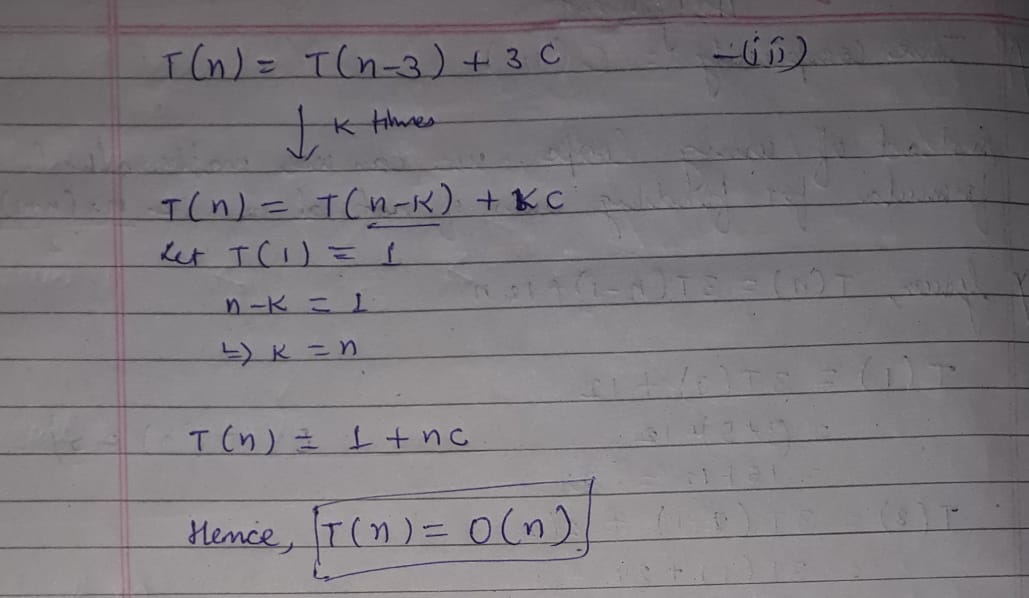 T(n) = T(n-3) + 3C -(iii)
↓ K times
T(n) = T(n-K) + KC
Let T(1) = 1
n-K = 1
↳) K = n
T(n) = 1 + nc
Hence, T(n) = O(n)